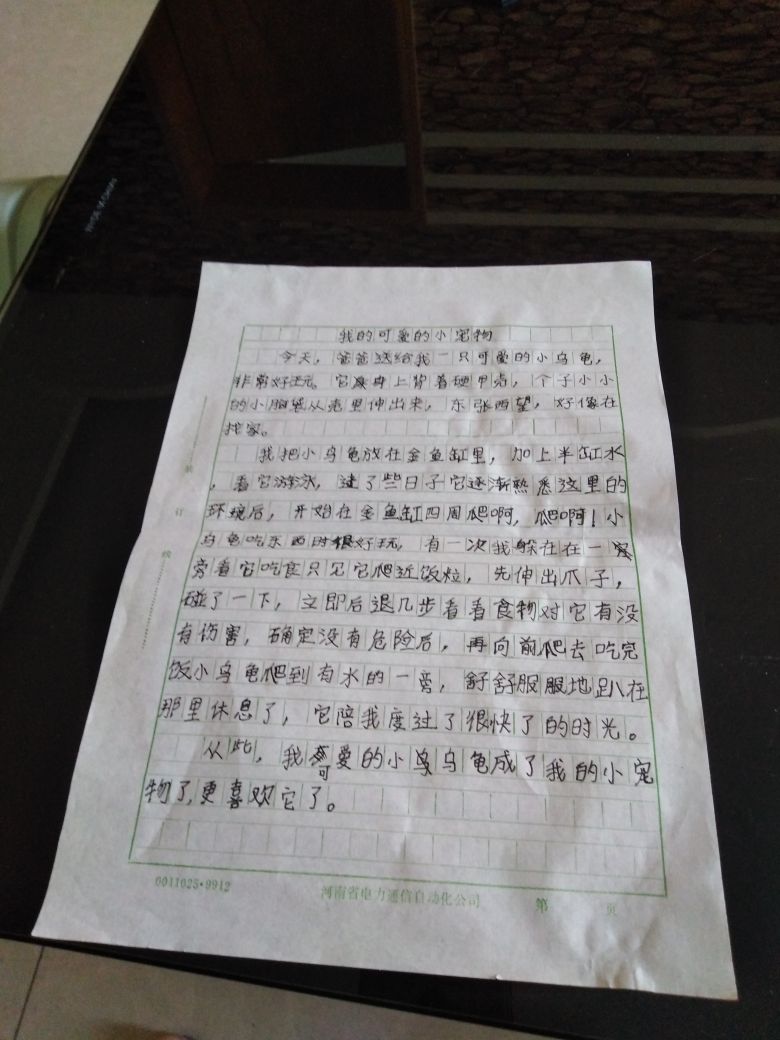 我的可爱的小宠物
今天，爸爸送给我一只可爱的小乌龟，
非常好玩。它废身上背着硬甲壳，个子小小
的小脑袋从壳里伸出来，东张西望，好像在
找家。
我把小乌龟放在金鱼缸里，加上半缸水
，看它游泳，过了些日子它逐渐熟悉这里的
环境后，开始在金鱼缸四周爬啊，爬啊！小
乌龟吃东西时很好玩，有一次我躲在在一
旁看它吃食只见它爬近饭粒，先伸出爪子，
碰了一下，立即后退几步看看食物对它有没
有伤害，确定没有危险后，再向前爬去吃完
饭小乌龟爬到有水的一旁，舒舒服服地趴在
那里休息了，它陪我度过了很快了的时光。
从此，我可爱的小乌龟成了我的小宠
物了，更喜欢它了。
0011025·9912 河南省电力通信自动化公司 第 页
装
订
线